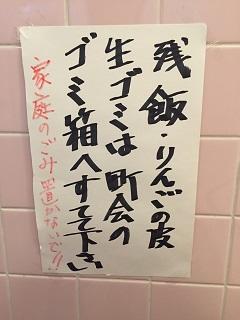 残飯・りんごの皮
生ゴミは町会の
ゴミ箱へすてて下さい
家庭のごみ置かないで!!